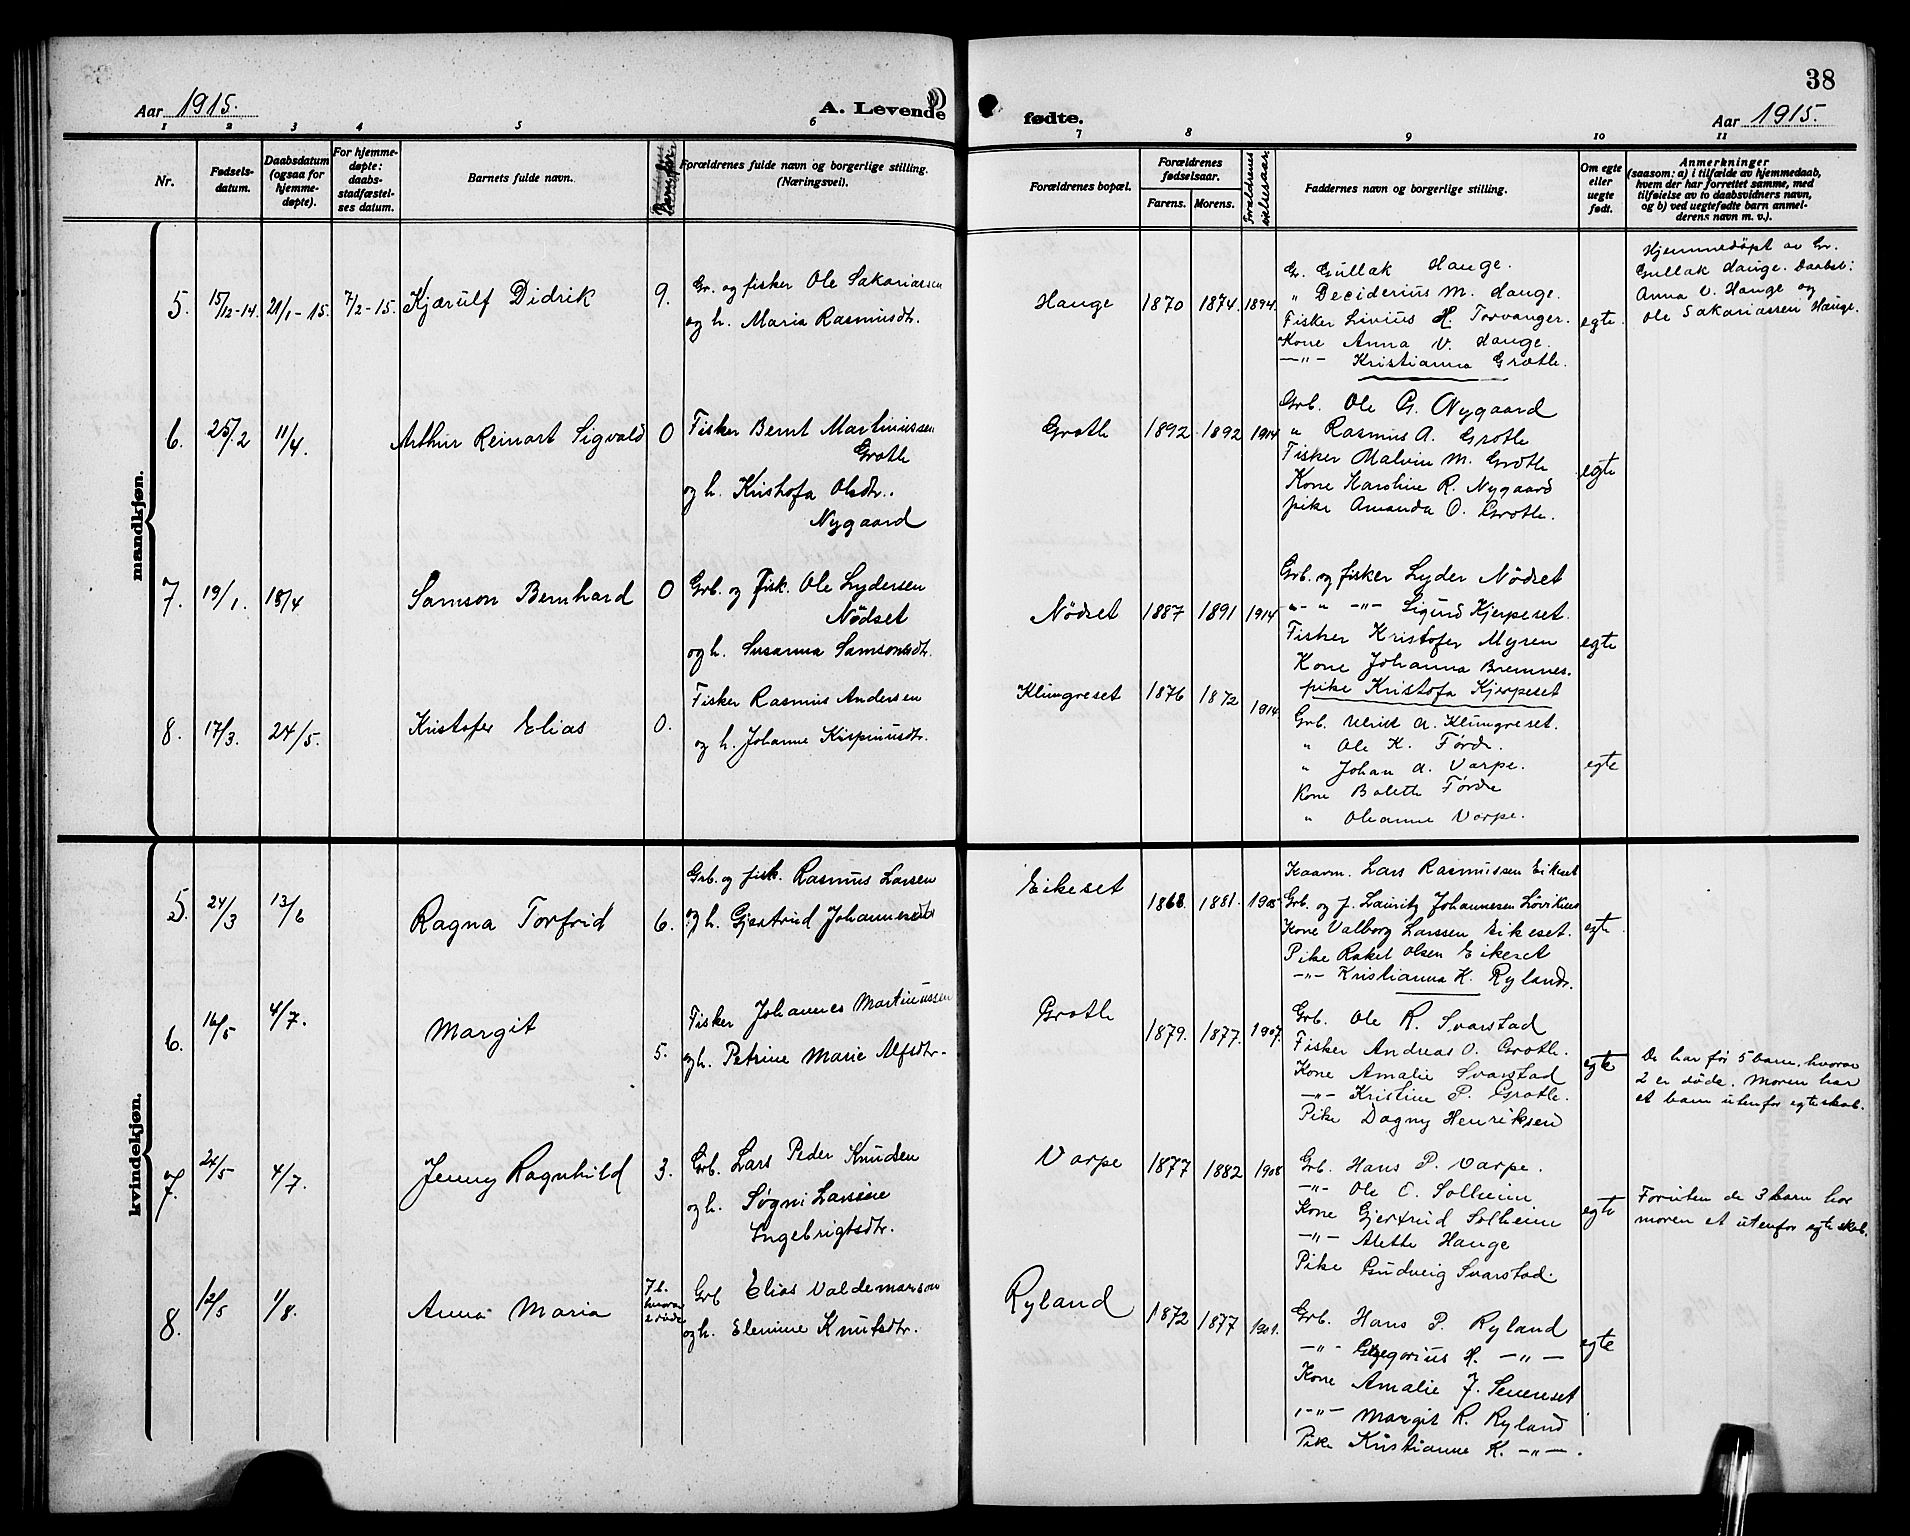 38
Aar 1915. A. Levende fødte. Aar 1915.
1 2 3 4 5 6 7 8 9 10 11
Nr.
Fødsels-
datum.
Daabsdatum
(ogsaa for
hjemme-
døpte).
For hjemme-
døpte:
daabs-
stadfæstel-
ses datum.
Barnets fulde navn.
Forældrenes fulde navn og borgerlige stilling.
(Næringsvei).
Forældrenes bopæl.
Forældrenes
fødselsaar.
Farens. Morens.
Forældrenes
vielsesaar.
Faddernes navn og borgerlige stilling.
Om egte
eller
uegte
født.
Anmerkninger
(saasom: a) i tilfælde av hjemmedaab,
hvem der har forrettet samme, med
tilføielse av to daabsvidners navn,
og b) ved uegtefødte barn anmel-
derens navn m. v.).
mandkjøn.
5. 15/12-14. 21/1-15. 7/2-15. Kjærulf Didrik 9.
Gr. og fisker Ole Sakariassen
og h. Maria Rasmusdtr.
Hauge 1870 1874 1894
Gr. Gullak Hauge.
" Deciderius M. Hauge.
Fisker Livius H. Torvanger.
Kone Anna V. Hauge.
—"— Kristianna Grotle.
egte
Hjemmedøpt av Gr.
Gullak Hauge. Daabsv:
Anna V. Hauge og
Ole Sakariassen Hauge.
6. 25/2 11/4 Arthur Reinart Sigvald 0
Fisker Bernt Martinussen
Grotle
og h. Kristofa Olsdtr.
Nygaard
Grotle 1892 1892 1914
Grb. Ole G. Nygaard
" Rasmus A. Grotle
Fisker Malvin M. Grotle
Kone Karoline R. Nygaard
pike Amanda O. Grotle.
egte
7. 19/1. 18/4 Samson Bernhard 0
Grb. og fisk. Ole Lydersen
Nödset
og h. Susanna Samsonsdtr.
Nödset 1887 1891 1914
Grb. og fisker Lyder Nödset
"-" —"— Sigurd Kjerpeset.
Fisker Kristofer Myren
Kone Johanna Bremnes.
pike Kristofa Kjerpeset
egte
8. 17/3. 24/5. Kristofer Elias 0.
Fisker Rasmus Andersen
og h. Johanne Kispinusdtr.
Klungreset 1876 1872 1914
Grb. Ulrik A. Klungreset.
" Ole K. Förde.
" Johan A. Varpe.
Kone Balette Förde
" Oleanne Varpe.
egte
kvindekjøn.
5. 24/3 13/6 Ragna Torfrid 6.
Grb. og fisk. Rasmus Larsen
og h. Gjertrud Johannesdtr
Eikeset 1868. 1881. 1905
Kaarm. Lars Rasmussen Eikeset
Grb. og f. Lauritz Johannesen Lövikens
Kone Valborg Larssen Eikeset.
Pike Rakel Olsen Eikeset
—"— Kristianna K. Ryland.
egte
6. 16/5 4/7. Margit 5.
Fisker Johannes Martinussen
og h. Petrine Marie Alfsdtr.
Grotle 1879. 1877. 1907.
Grb. Ole R. Svarstad
Fisker Andreas O. Grotle.
Kone Amalie Svarstad
—"— Kristine P. Grotle.
Pike Dagny Henriksen
egte
De har før 5 barn, hvorav
2 er døde. Moren har
et barn utenfor egteskab.
7. 24/5 4/7. Jenny Ragnhild 3.
Grb. Lars Peder Knudsen
og h. Søgni Lassine
Ingebrigtsdtr.
Varpe 1877 1882 1908
Grb. Hans P. Varpe.
—"— Ole C. Solheim
Kone Gjertrud Solheim
—"— Alette Hauge
Pike Gudveig Svarstad.
egte
Foruten de 3 barn har
moren et utenfor egteskab.
8. 12/5 1/8. Anna Maria 7 b.
hvorav
2 døde
Grb Elias Valdemarson
og h. Elenine Knutsdtr.
Ryland 1872 1877 1901.
Grb. Hans P. Ryland
—"— Gregorius H. —"—
Kone Amalie J. Senereset
—"— Margit R. Ryland
Pike Kristianne K. —"—.
egte